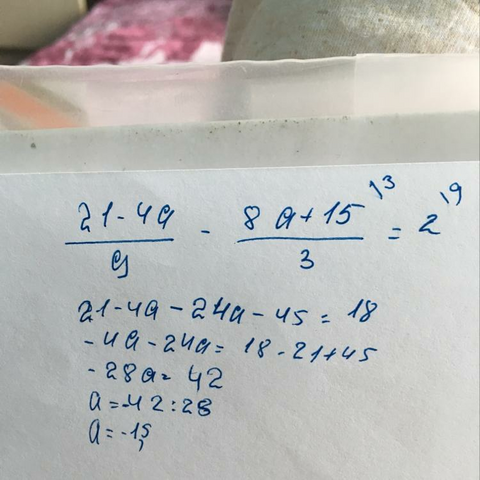 (21-4a)/9 - (8a+15)/3 \3 = 2 \9
21-4a-24a-45=18
-4a-24a=18-21+45
-28a=42
a=-42:28
a=-1,5